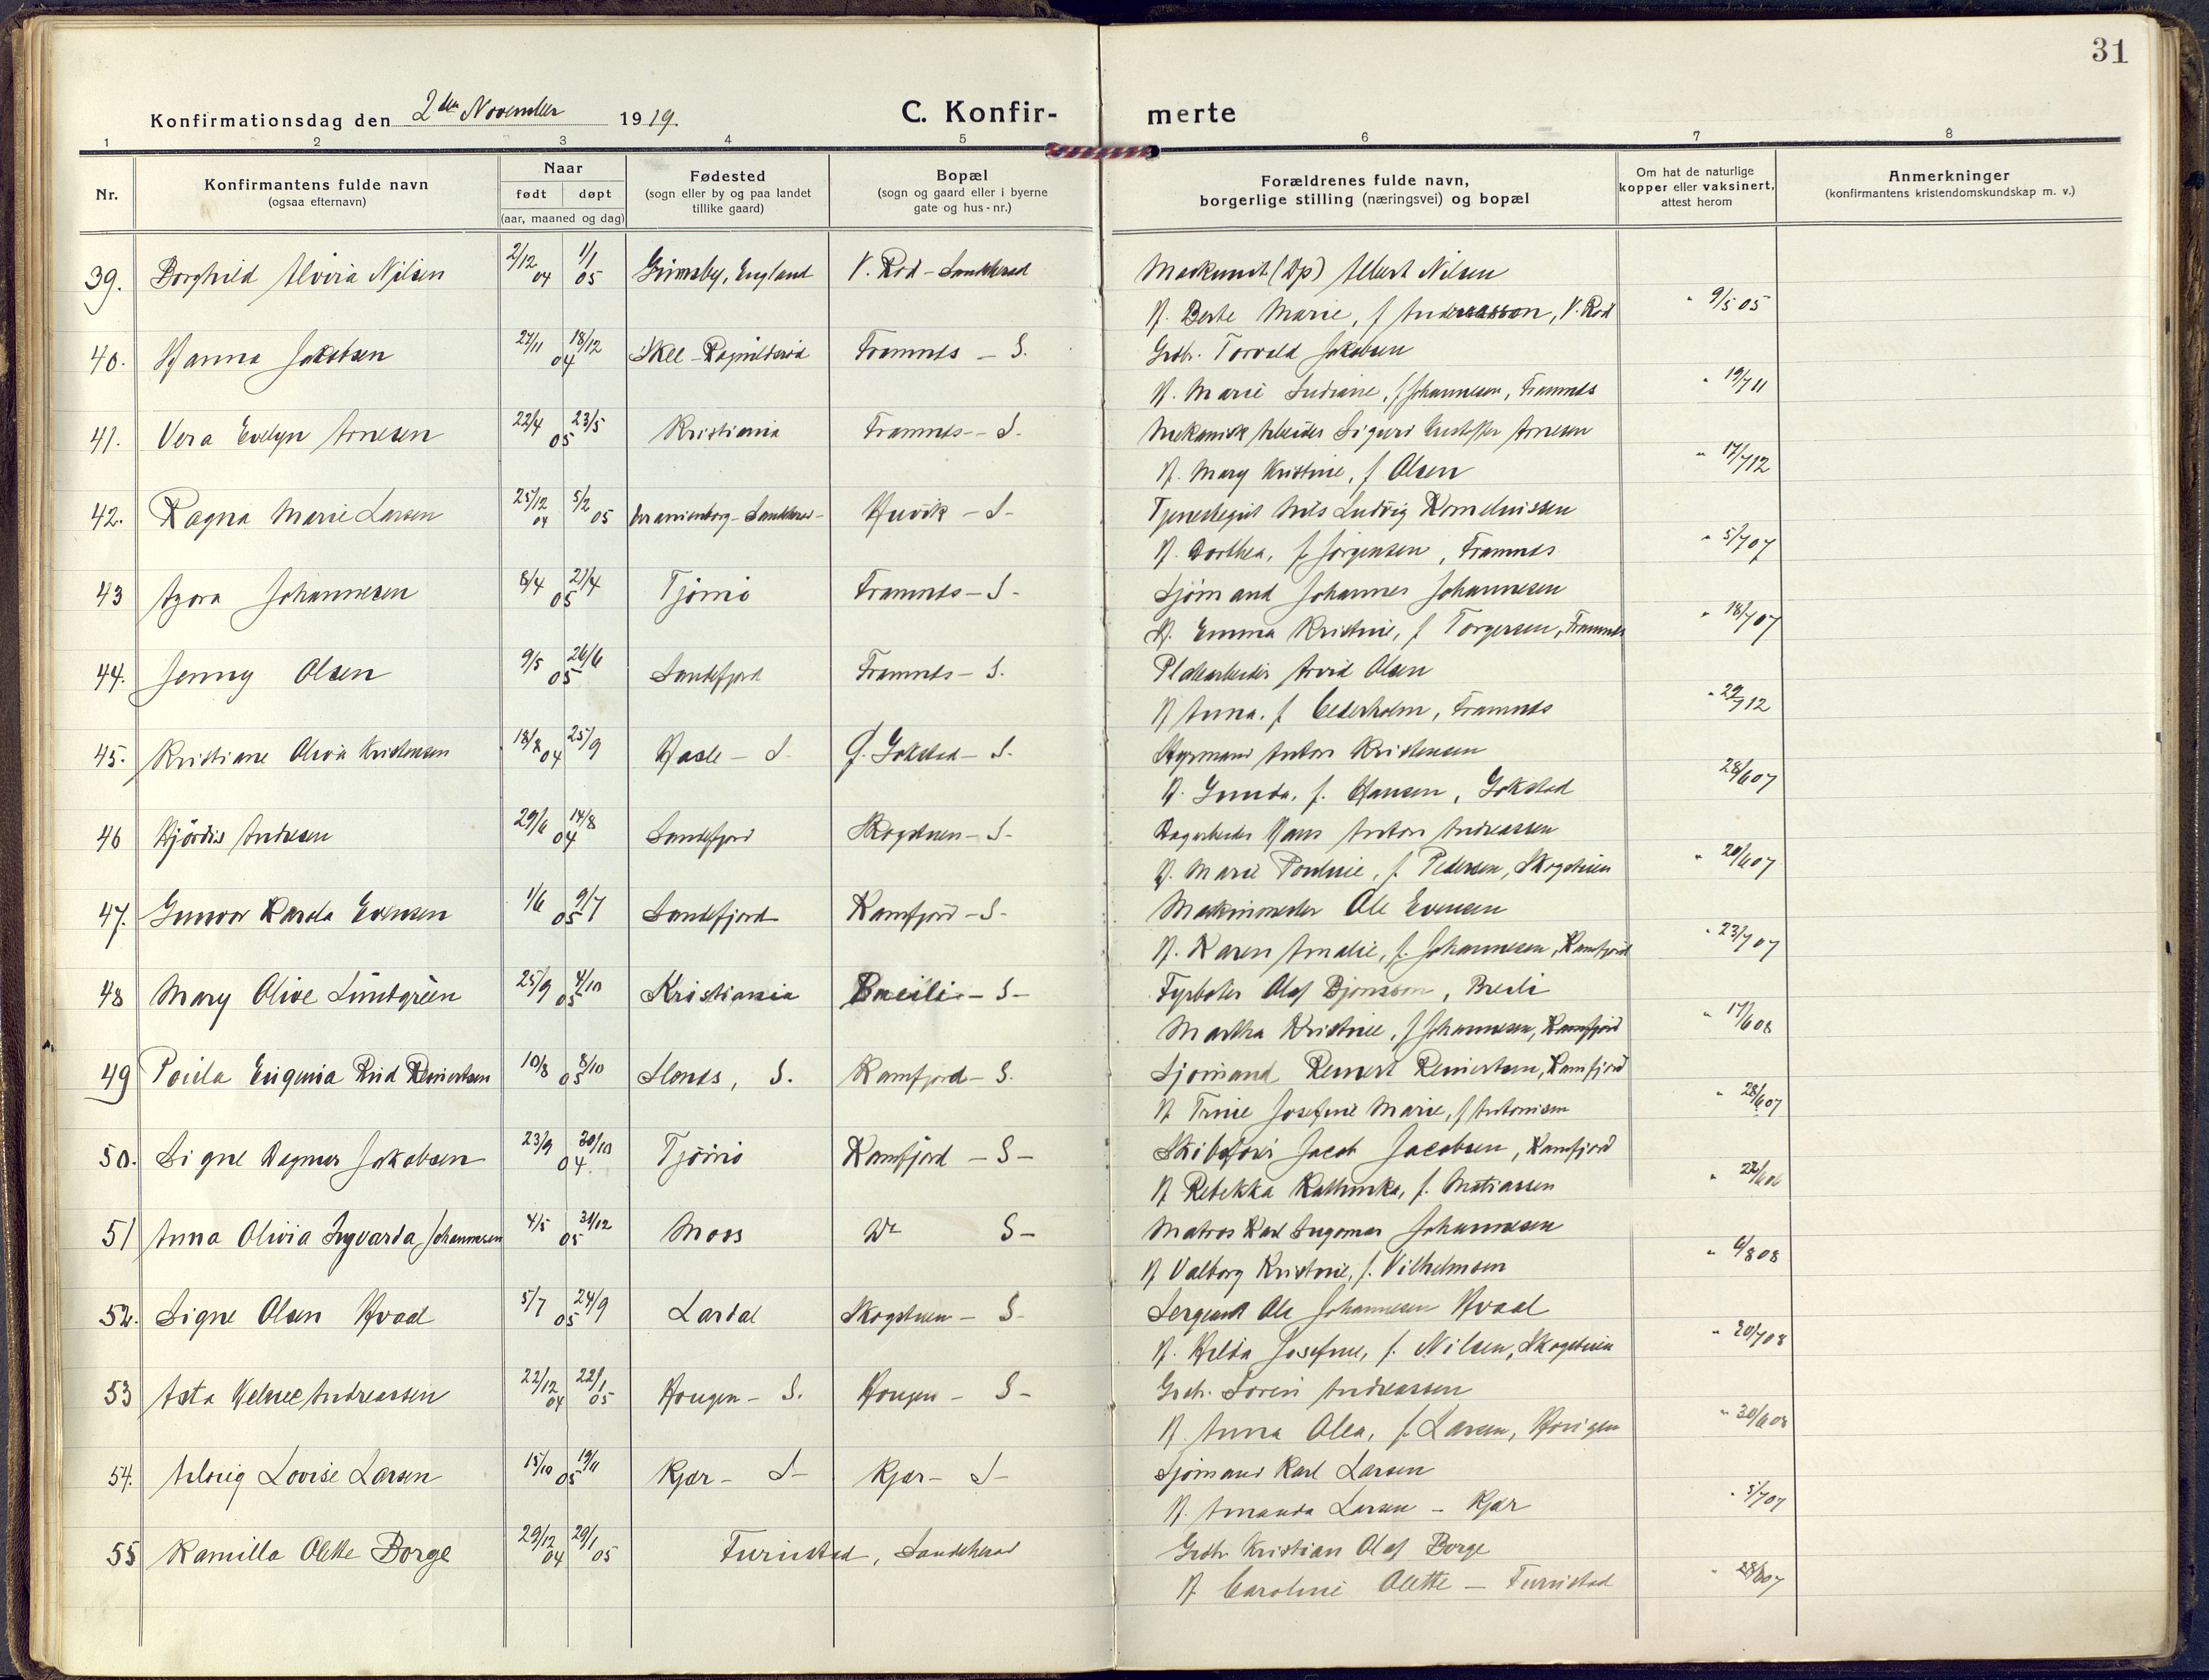 31
Konfirmationsdag den 2den November 1919.
C. Konfir- merte
1 2 3 4 5 6 7 8
Nr.
Konfirmantens fulde navn
(ogsaa efternavn)
Naar
født døpt
(aar, maaned og dag)
Fødested
(sogn eller by og paa landet
tillike gaard)
Bopæl
(sogn og gaard eller i byerne
gate og hus-nr.)
Forældrenes fulde navn,
borgerlige stilling (næringsvei) og bopæl
Om hat de naturlige
kopper eller vaksinert,
attest herom
Anmerkninger
(konfirmantens kristendomskundskap m. v.)
39. Borghild Alvira Nilsen 2/12 04 1/1 05 Grimsby, England V. Rød - Sandeherad Albert Nilsen
H. Berte Marie, f. Andreassen, V. Rød " 9/5 05
40. Hanna Jakobsen 27/11 18/12 04 Skee - Framnes - S. Grdbr. Torvald Jakobsen
H. Marie f. Johannesen, Framnes " 19/7 11
41. Vera Evelyn Arnesen 22/4 23/5 05 Kristiania Framnes - S. Mekanisk Arbeider Sigurd Arnesen
H. Mary Kristine, f. Olsen " 17/7 12
42. Ragna Marie Larsen 25/12 04 5/2 05 Huvik - S - Nils Ludvig
H. Dorthea, f. Jørgensen, Framnes " 5/7 07
43 Agora Johannesen 8/4 21/4 05 Tjømø Framnes - S - Sjømand Johannes Johannesen
H. Emma Kristine, f. Torgersen, Framnes " 18/7 07
44. Jenny Olsen 9/5 26/6 05 Sandefjord Framnes - S. Platearbeider Arvid Olsen
H. Anna, f. Cederholm, Framnes " 29/7 12
45. Kristiane Olivia Kristensen 18/8 25/9 04 Hasle - S. Gokstad - S. Styrmand Anton Kristensen
H. Gunda, f. Hansen, Gokstad 28/6 07
46 Hjørdis Andresen 29/6 14/8 04 Sandefjord Skogstuen - S - Dagarbeider Hans Anton Andreassen
H. Marie Pouline, f. Pedersen, Skogstuen " 20/6 07
47. Gunvor Karda Evensen 1/6 9/7 05 Sandefjord Kamfjord - S. Maskinmester Ole Evensen
H. Karen Amalie, f. Johannesen, Kamfjord " 23/7 07
48 Mary Olive Lundgrèen 25/9 4/10 05 Kristiania Breili - S - Fyrbøter Olaf Bjønsson, Breili
Martha Kristine, f. Johannesen, Kamfjord " 17/6 08
49 Poula Eugenia Rud Reinertsen 10/8 8/10 05 S. Kamfjord - S. Sjømand Reinert Reinertsen, Kamfjord
H. Trine Josefine Marie, f. Antonisen " 28/6 07
50. Signe Dagmar Jakobsen 23/9 30/10 04. Tjømø Kamfjord - S - Skibsfører Jacob Jacobsen, Kamfjord
H. Rebekka Kathinka, f. Matiassen " 22/6 06
51 Anna Olivia Ingvarda Johannesen 4/5 31/12 05 Moss Do S - Matros Karl Ingomar Johannesen
H. Valborg Kristine, f. Vilhelmsen " 6/8 08
52. Signe Olsen Hvaal 5/7 24/9 05 Lardal Skogstuen - S Sergeant Ole Johannesen Hvaal
H. Hilda Josefine, f. Nilsen, Skogstuen " 20/7 08
53 Asta Helene Andreassen 22/12 04 22/1 05 Hougen - S. Hougen - S - Grdbr. Søren Andreassen
H. Anna Olea, f. Larsen, Hougen " 30/6 08
54. Solveig Lovise Larsen 15/10 19/11 05 Kjær - S - Kjær - S - Sjømand Karl Larsen
H. Amanda Larsen - Kjær " 5/7 07
55 Kamilla Olette Borge 29/12 04 29/1 05 Furustad, Sandeherad Grdbr Kristian Olaf Borge
H. Caroline Olette - Furustad " 28/6 07